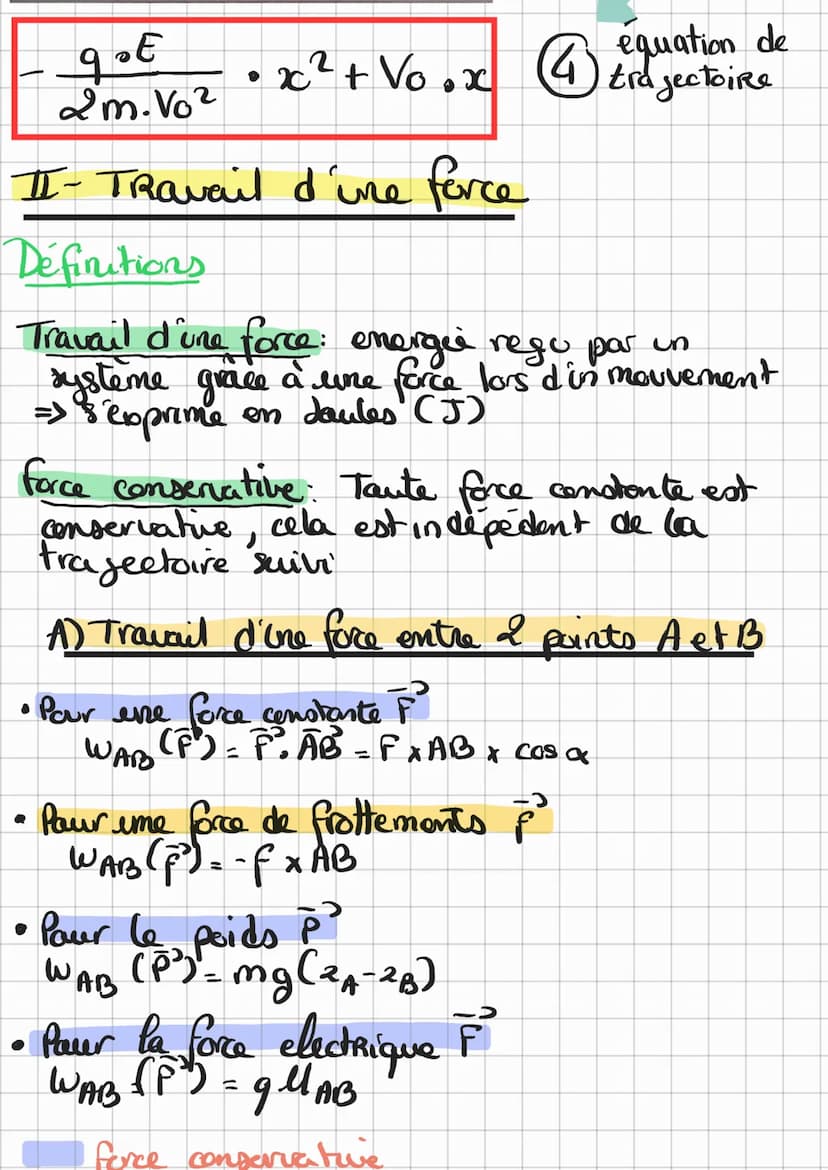 - q.E / 2m.V₀² . x² + V₀.x
④ équation de
trajectoire
II- Travail d'une force
Définitions
Travail d'une force: energie reçu par un
système grâce à une force lors d'un mouvement
=> s'exprime en Joules (J)
force conservative: Toute force constante est
conservative, cela est indépédent de la
trajectoire suivi
A) Travail d'une force entre 2 points A et B
• Pour une force constante F⃗
W_AB (F⃗) = F⃗. AB⃗ = F x AB x cos α
• Pour une force de frottements f⃗
W_AB (f⃗) = - f x AB
• Pour le poids P⃗
W_AB (P⃗) = mg(z_A - z_B)
• Pour la force electrique F⃗
W_AB (F⃗) = q U_AB
force conservative